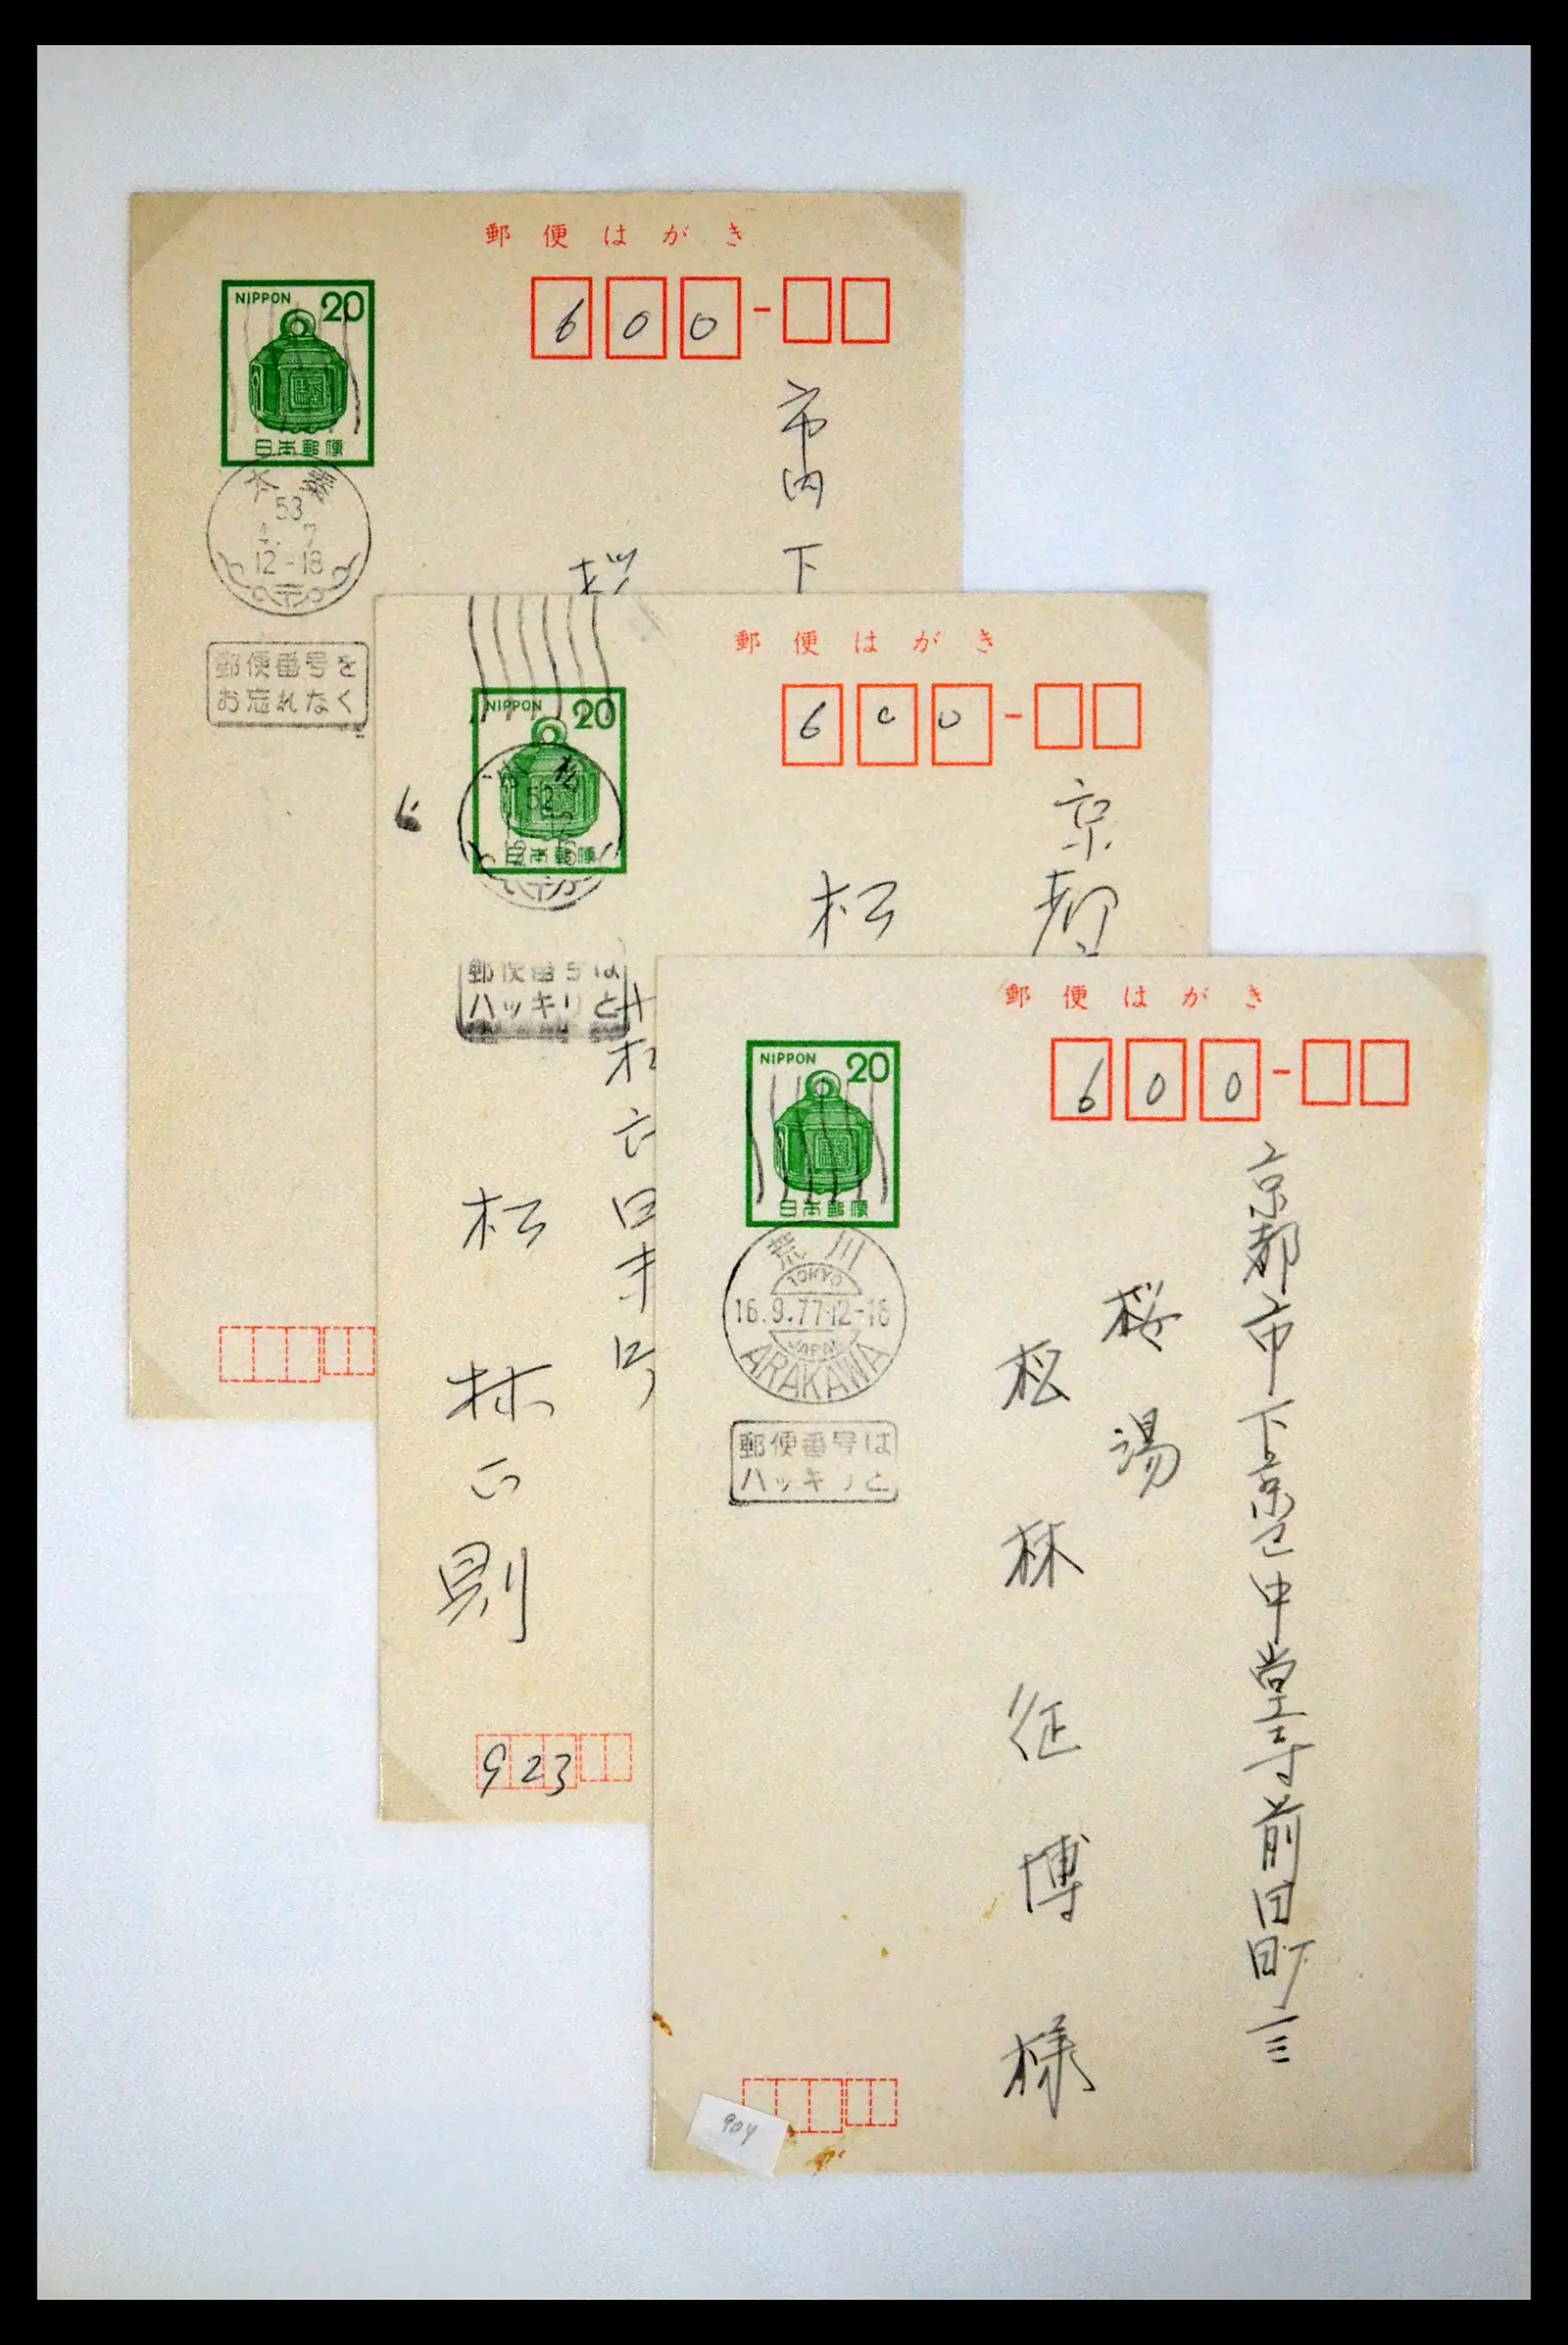 郵便はがき
NIPPON 20
日本郵便
600
市内下
桜
53
4. 7
12-18
郵便番号を
お忘れなく
郵便はがき
NIPPON 20
日本郵便
600
京都
松
52
郵便番号は
ハッキリと
松林正則
923
郵便はがき
NIPPON 20
日本郵便
600
京都市下京区中堂寺前田町三
桜湯
松林征博様
荒川
TOKYO
16.9.77.12-18
JAPAN
ARAKAWA
郵便番号は
ハッキリと
904